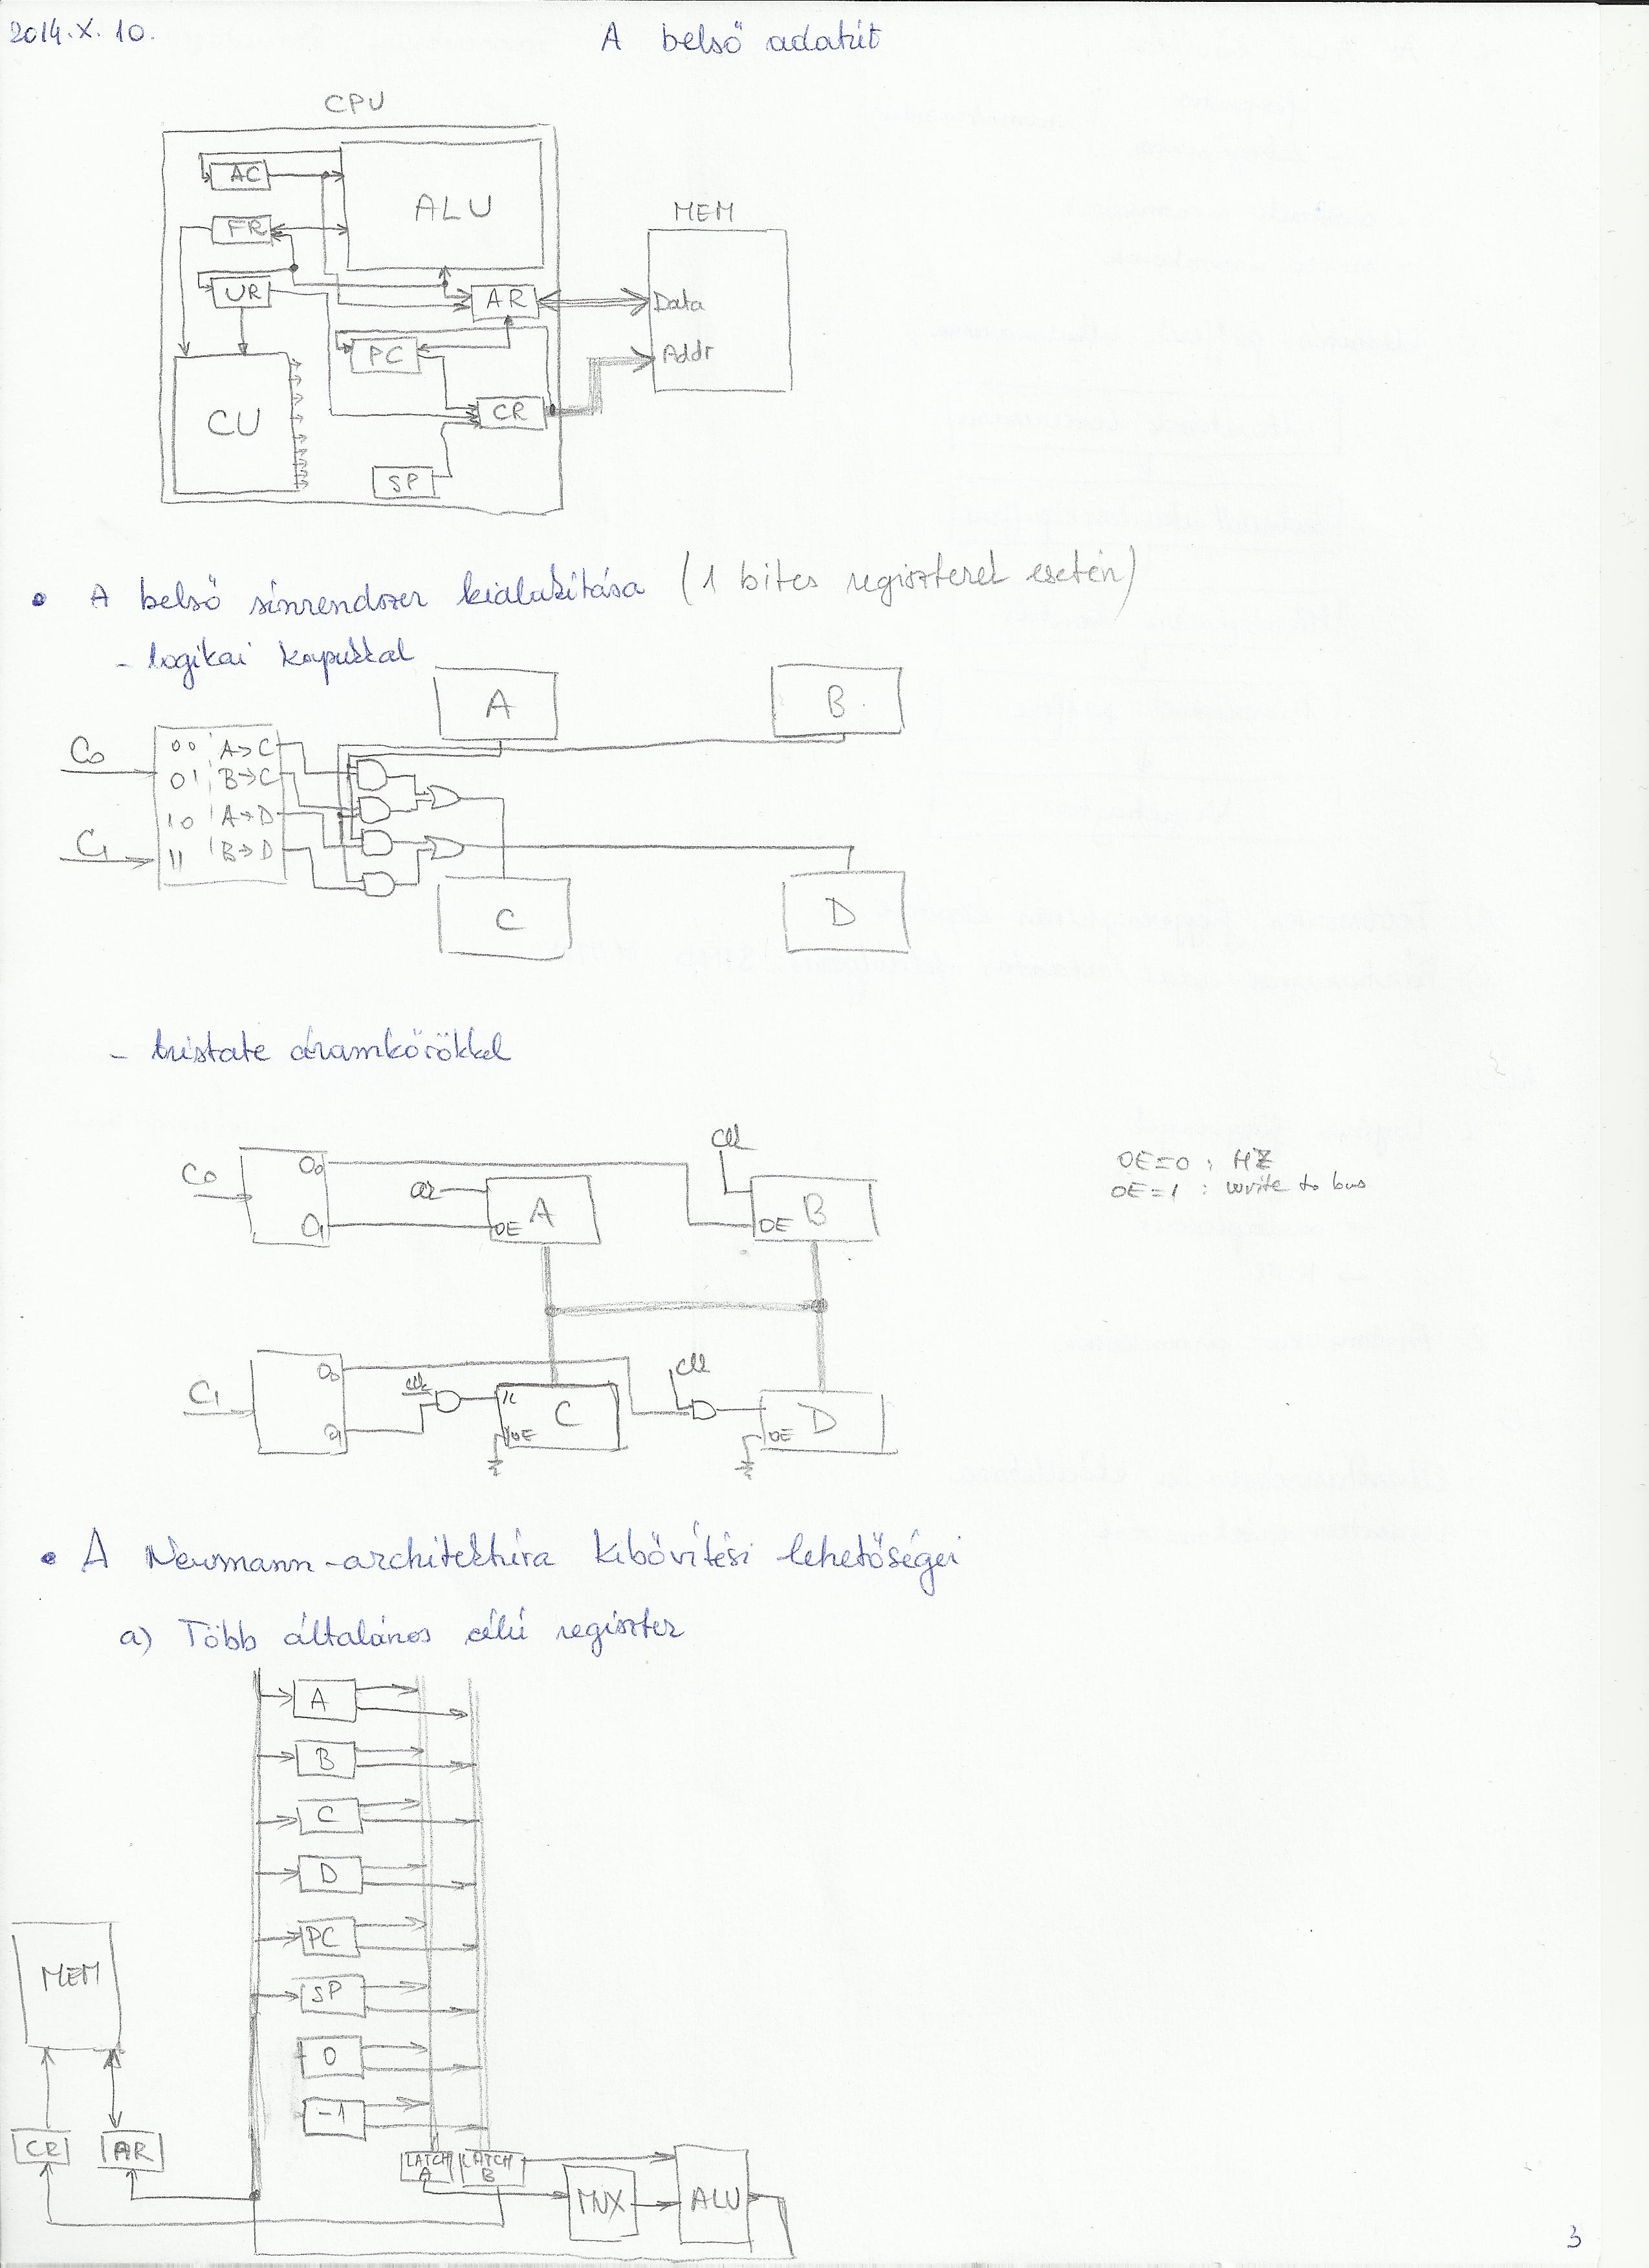 2014. X. 10.
A belső adatút
CPU
AC
ALU
FR
UR
AR
PC
CU
CR
SP
MEM
Data
Addr
• A belső sínrendszer kialakítása (1 bites regiszterek esetén)
- logikai kapukkal
A
B
C0
00 A→C
01 B→C
10 A→D
11 B→D
C1
C
D
- tristate áramkörökkel
C0
O0
O1
clk
A
OE
clk
B
OE
OE=0 : HZ
OE=1 : write to bus
C1
O0
O1
clk
C
OE
clk
D
OE
• A Neumann-architektúra kibővítési lehetőségei
a) Több általános célú regiszter
A
B
C
D
PC
SP
0
-1
MEM
CR
AR
LATCH A
LATCH B
MUX
ALU
3